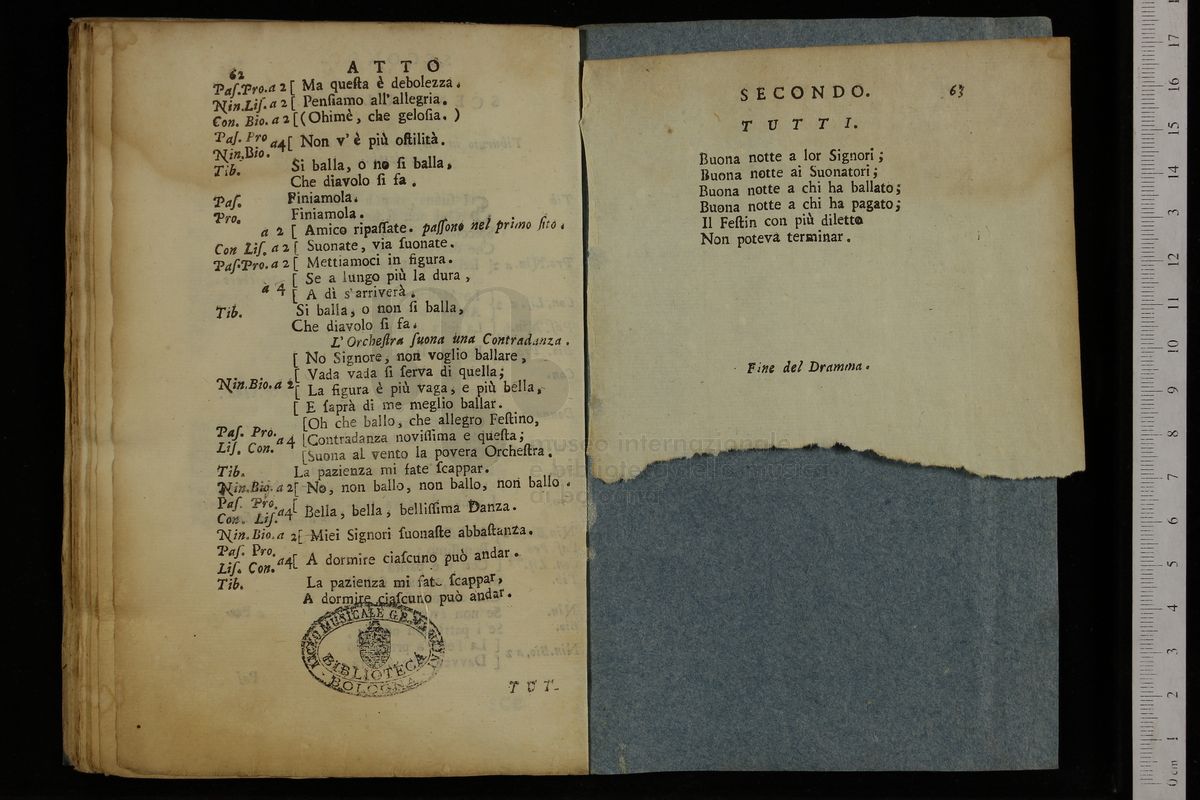 62
ATTO
Paſ.Pro.a 2 [ Ma queſta è debolezza.
Nin.Liſ.a 2 [ Penſiamo all'allegria.
Con. Bio. a 2 [ (Ohimè, che geloſia. )
Paſ. Pro
Nin.Bio. a4 [ Non v'è più oſtilità.
Tib. Si balla, o no ſi balla,
Che diavolo ſi fa.
Paſ. Finiamola.
Pro. Finiamola.
a 2 [ Amico ripaſſate. paſſono nel primo ſito.
Con Liſ. a 2 [ Suonate, via ſuonate.
Paſ.Pro.a 2 [ Mettiamoci in figura.
[ Se a lungo più la dura,
a 4 [ A dì s'arriverà.
Tib. Si balla, o non ſi balla,
Che diavolo ſi fa.
L'Orcheſtra ſuona una Contradanza.
[ No Signore, non voglio ballare,
[ Vada vada ſi ſerva di quella;
Nin.Bio.a 2 [ La figura è più vaga, e più bella,
[ E ſaprà di me meglio ballar.
[Oh che ballo, che allegro Feſtino,
Paſ. Pro.
Liſ. Con. a4 [Contradanza noviſſima e queſta;
[Suona al vento la povera Orcheſtra.
Tib. La pazienza mi fate ſcappar.
Nin.Bio. a 2[ No, non ballo, non ballo, non ballo.
Paſ. Pro.
Con. Liſ. a4[ Bella, bella, belliſſima Danza.
Nin.Bio.a 2[ Miei Signori ſuonaſte abbaſtanza.
Paſ. Pro.
Liſ. Con. a4[ A dormire ciaſcuno può andar.
Tib. La pazienza mi fate ſcappar,
A dormire ciaſcuno può andar.
LICEO MUSICALE
BIBLIOTECA
BOLOGNA
TUT-
SECONDO. 63
TUTTI.
Buona notte a lor Signori;
Buona notte ai Suonatori;
Buona notte a chi ha ballato;
Buona notte a chi ha pagato;
Il Feſtin con più diletto
Non poteva terminar.
Fine del Dramma.
museo internazionale
e biblioteca della musica
di bologna
0 cm 1 2 3 4 5 6 7 8 9 10 11 12 13 14 15 16 17